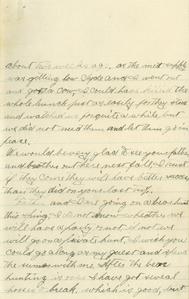 about two weeks ago. as the meat supply
was getting low Clyde and I went out
and got a cow. I could have killed the
whole bunch just as easily for they stood
and watched us for quite a while but
we did not need them and let them go in
peace.
We would be very glad to see your father
and brother out here next fall. I want
if they come they will have better success
than they did on your last trip.
Father and I are going on a bear hunt
this spring. I do not know whether we
will have a party or not if not we
will go on a private hunt. I wish you
could go along as my guest and spend
the summer with me. After the bear
hunting is over I have got several
horses to break, which is good, but